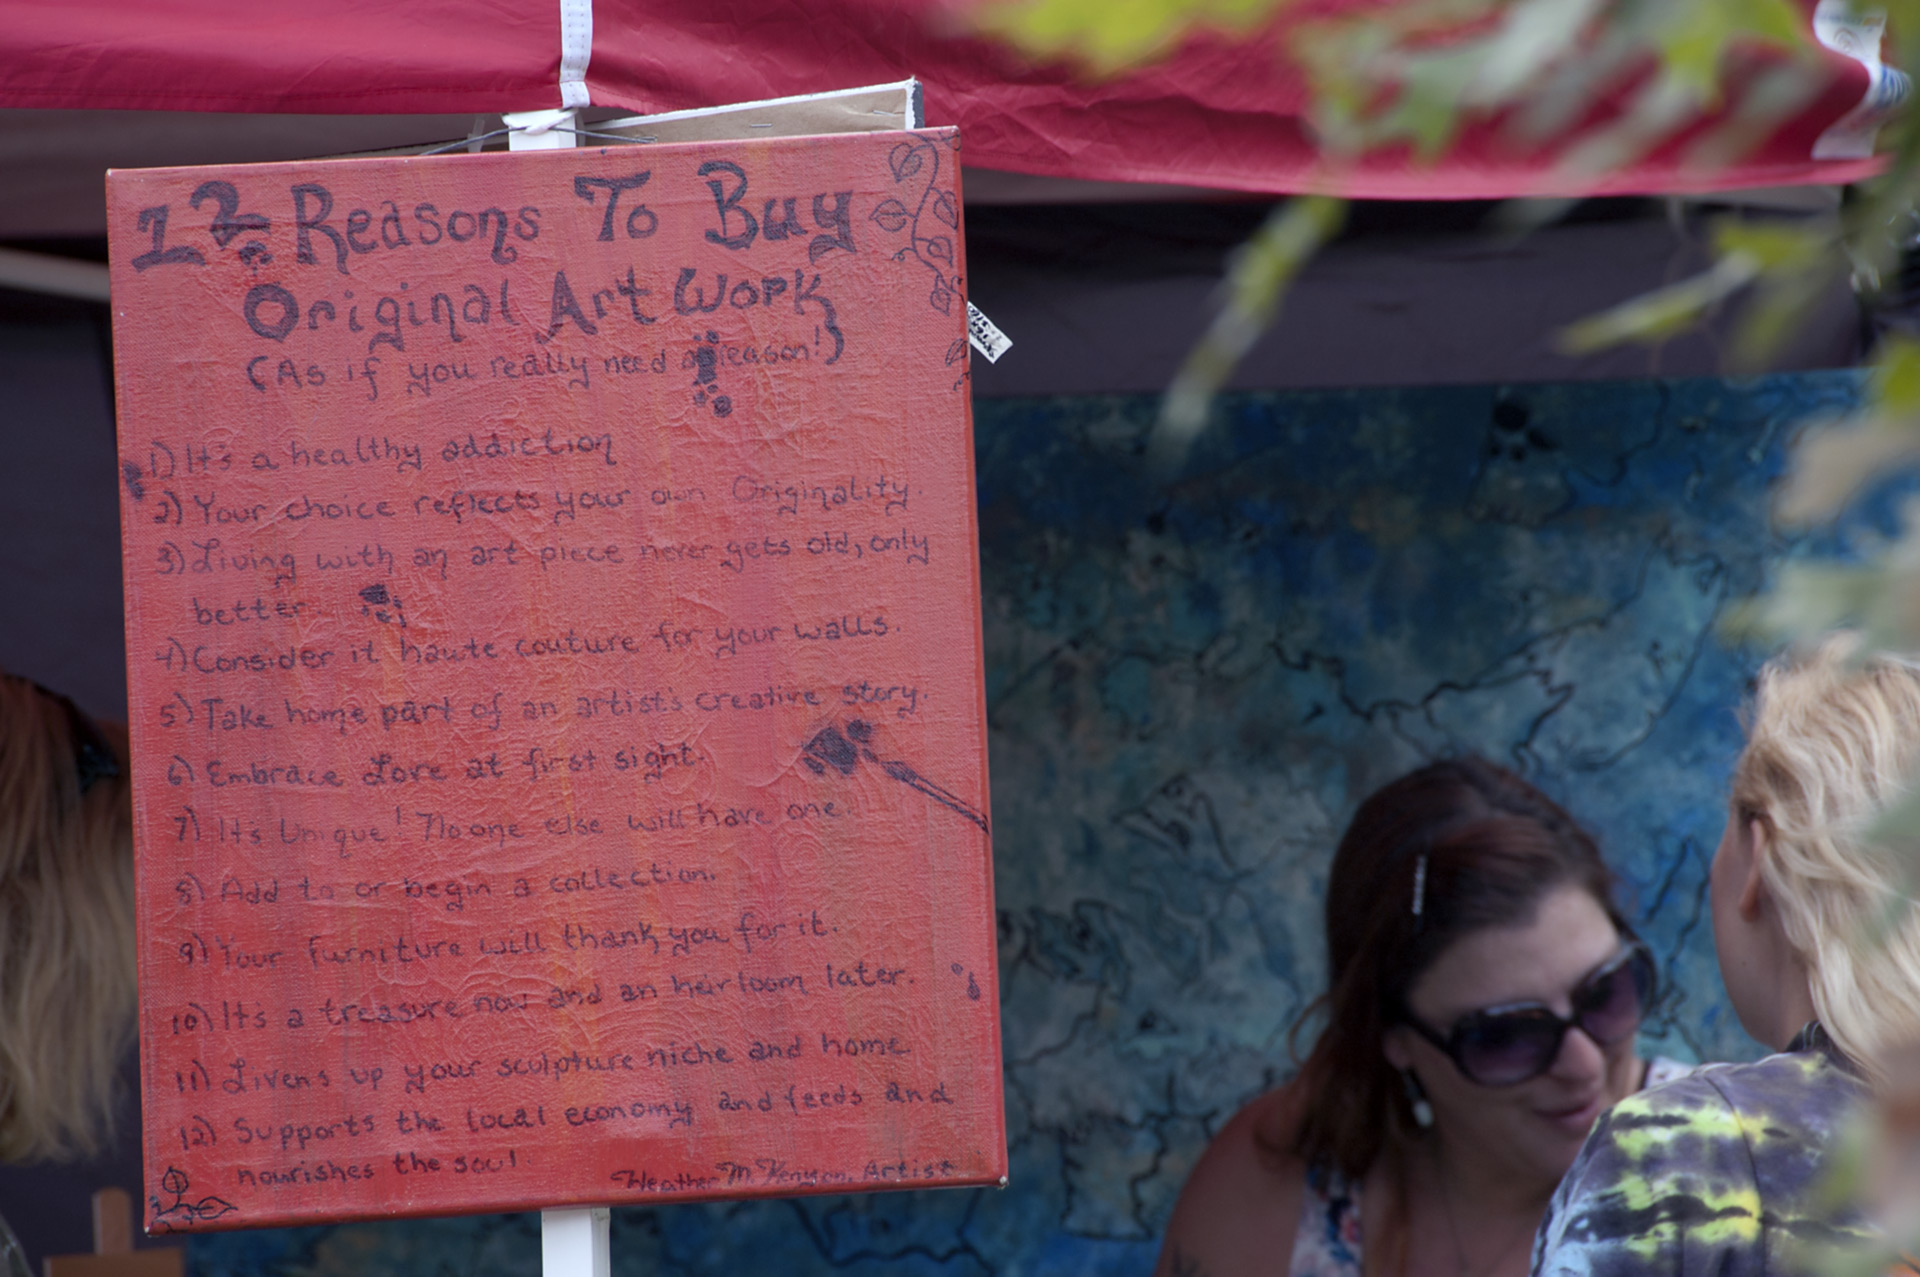 12 Reasons To Buy
Original Art Work
(As if you really need a reason!)
1) It's a healthy addiction
2) Your choice reflects your own Originality.
3) Living with an art piece never gets old, only
better
4) Consider it haute couture for your walls.
5) Take home part of an artist's creative story.
6) Embrace Love at first sight.
7) It's Unique! No one else will have one.
8) Add to or begin a collection.
9) Your furniture will thank you for it.
10) It's a treasure now and an heirloom later.
11) Livens up your sculpture niche and home
12) Supports the local economy and feeds and
nourishes the soul
Heather M. Kenyon, Artist